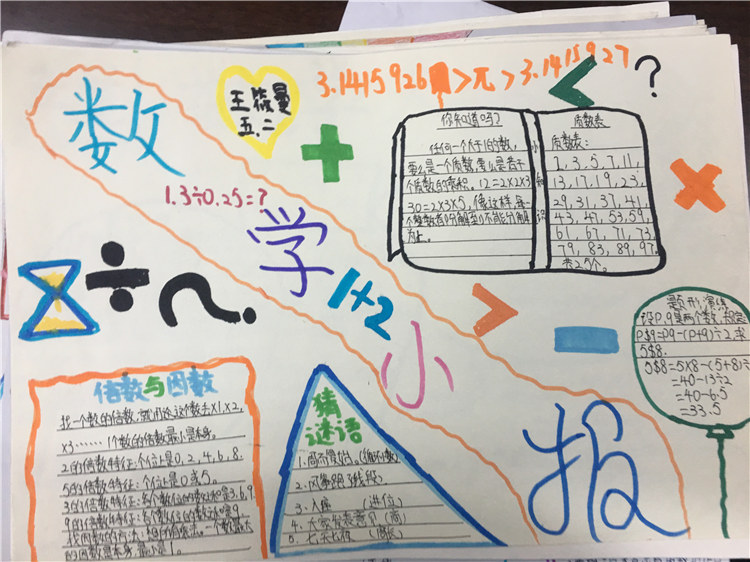 数学小报
王筱曼
五.二
3.1415926>π>3.1415927
?
1.3÷0.25=?
1+2
你知道吗?
任何一个大于1的数,
要么是一个质数,要么是若干
个质数的乘积。12=2×2×3
30=2×3×5,像这样,每一
个整数都可分解到不能分解
为止。
小知识
质数表
质数表:
2,3,5,7,11,
13,17,19,23,
29,31,37,41,
43,47,53,59,
61,67,71,73,
79,83,89,97,
共25个。
题形演练
设P.q是两个数,规定
P$q=pq-(p+q)÷2.求
5$8.
5$8=5×8-(5+8)÷
=40-13÷2
=40-6.5
=33.5
倍数与因数
找一个数的倍数,就用这个数去×1,×2,
×3……一个数的倍数最小是本身。
2的倍数特征:个位上是0,2,4,6,8.
5的倍数特征:个位是0或5。
3的倍数特征:各个数位的数之和是3.6.9
9的倍数特征:各个数位的数之和是9
的因数是本身.最小是1。
猜谜语
1.周而复始。(循环小数)
2.(线段)
3.(进位)
4.大家发表意见(商)
5.七天七夜(周长)